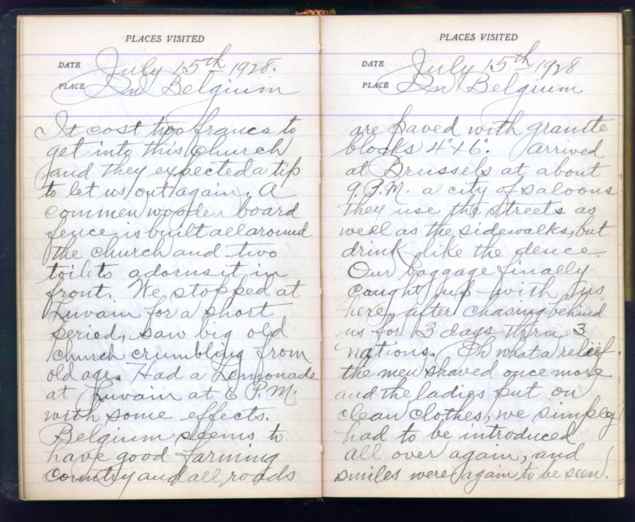 PLACES VISITED
DATE July 15th 1928.
PLACE In Belgium
It cost two francs to
get into this church
and they expected a tip
to let us out again. A
common wooden board
fence is built all around
the church and two
toilets adorns it in
front. We stopped at
Luvain for a short
period, saw big old
church crumbling from
old age. Had a Lemonade
at Luvain at 6 P.M.
with some effects.
Belgium seems to
have good farming
country and all roads
PLACES VISITED
DATE July 15th 1928
PLACE In Belgium
are paved with granite
blocks 4"x6". Arrived
at Brussels at about
9 P.M. a city of saloons
they use the streets as
well as the sidewalks, but
drink like the deuce.
Our baggage finally
caught up with us
here, after chasing behind
us for 3 days thru 3
nations. Oh what a relief.
the men shaved once more
and the ladies put on
clean clothes, we simpley
had to be introduced
all over again, and
smiles were again to be seen.